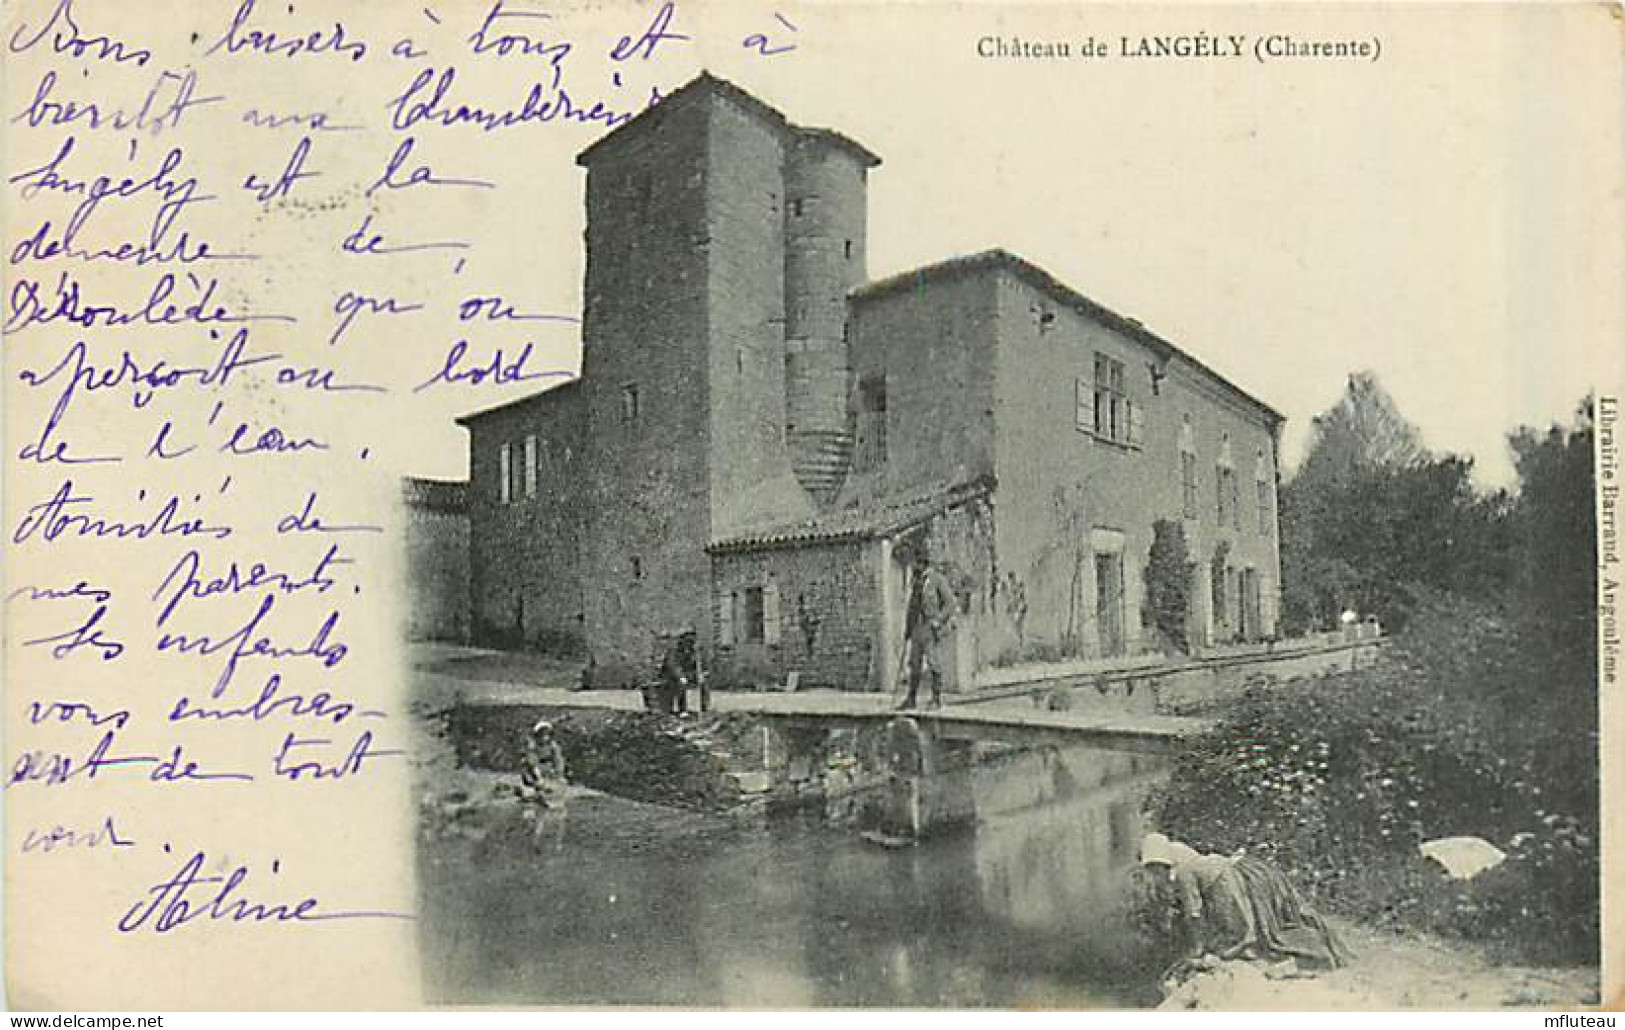 Château de LANGÉLY (Charente)
Bons baisers à tous et à
bientôt aux
Langély est la
demeure de
Déroulède qu'on
aperçoit au bord
de l'eau.
Amitiés de
mes parents.
Les enfants
vous embras-
sent de tout
cœur.
Aline
Librairie Barraud, Angoulême
www.delcampe.net
mfluteau